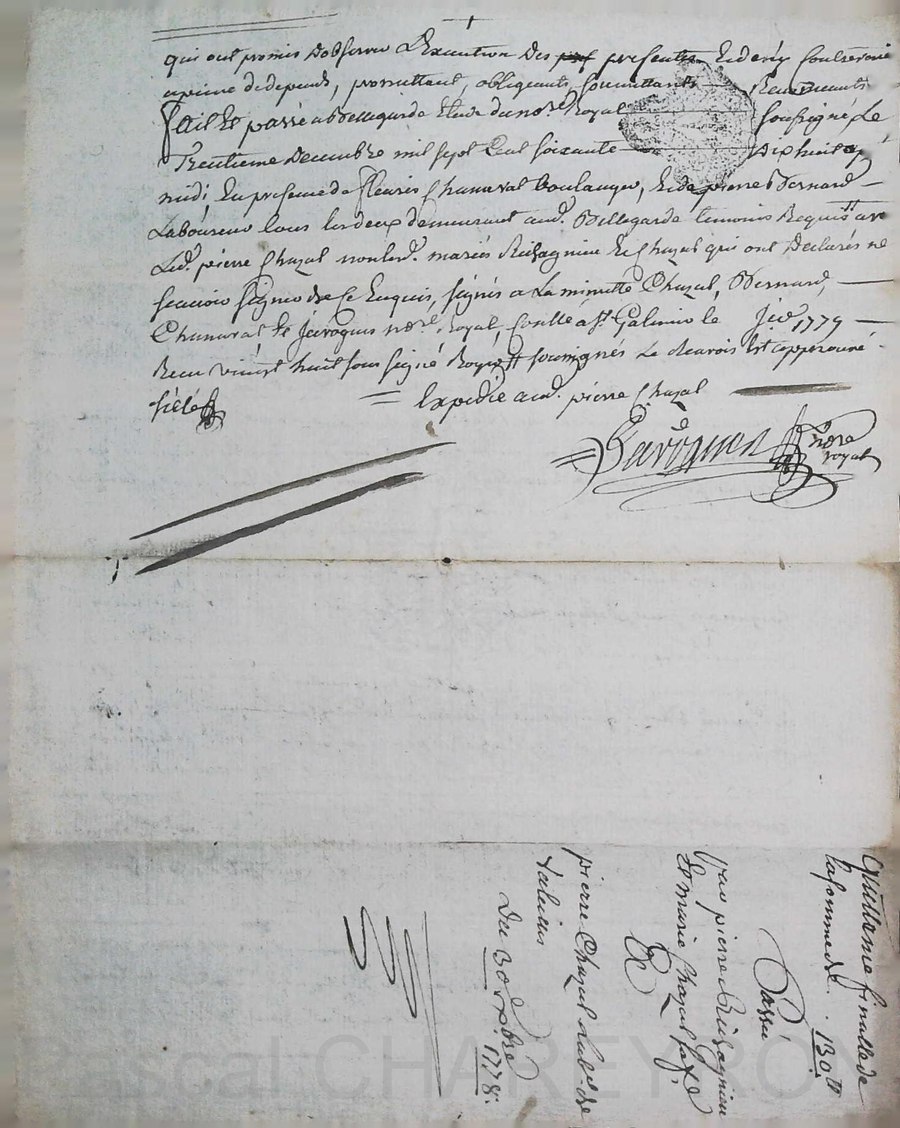 qui ont promis d'observer L'Execution des presentes
a peine de depends, promettant, obligeants, soumittants Renoncants
fait et passé a Bellegarde Etude du no.re Royal soussigné Le
Trentieme decembre mil sept Cent soixante dixhuit
midi, En presence de fleuris Chanavat boulanger, Et de pierre Bernard
Laboureur tous les deux demeurant aud. Bellegarde temoins Requis
Led. pierre Chazal non led. mariés Et Chazal qui ont declarés ne
scavoir signer de ce Enquis, signés a La minutte Chazal, Bernard,
Chanavat Et Javogues no.re royal, Conllé a S.t Galmier le Jer 1779
Recu vingt huit sous signé soussignés Le est approuvé
Expedié aud. pierre Chazal
Javogues no.re
royal
Quittance finalle de
la somme de 130 tt
Passée
par pierre
Et marie Chazal sa fe
A
pierre Chazal Lab.r de
Du 30 Xbre 1778.
Pascal CHAREYRON